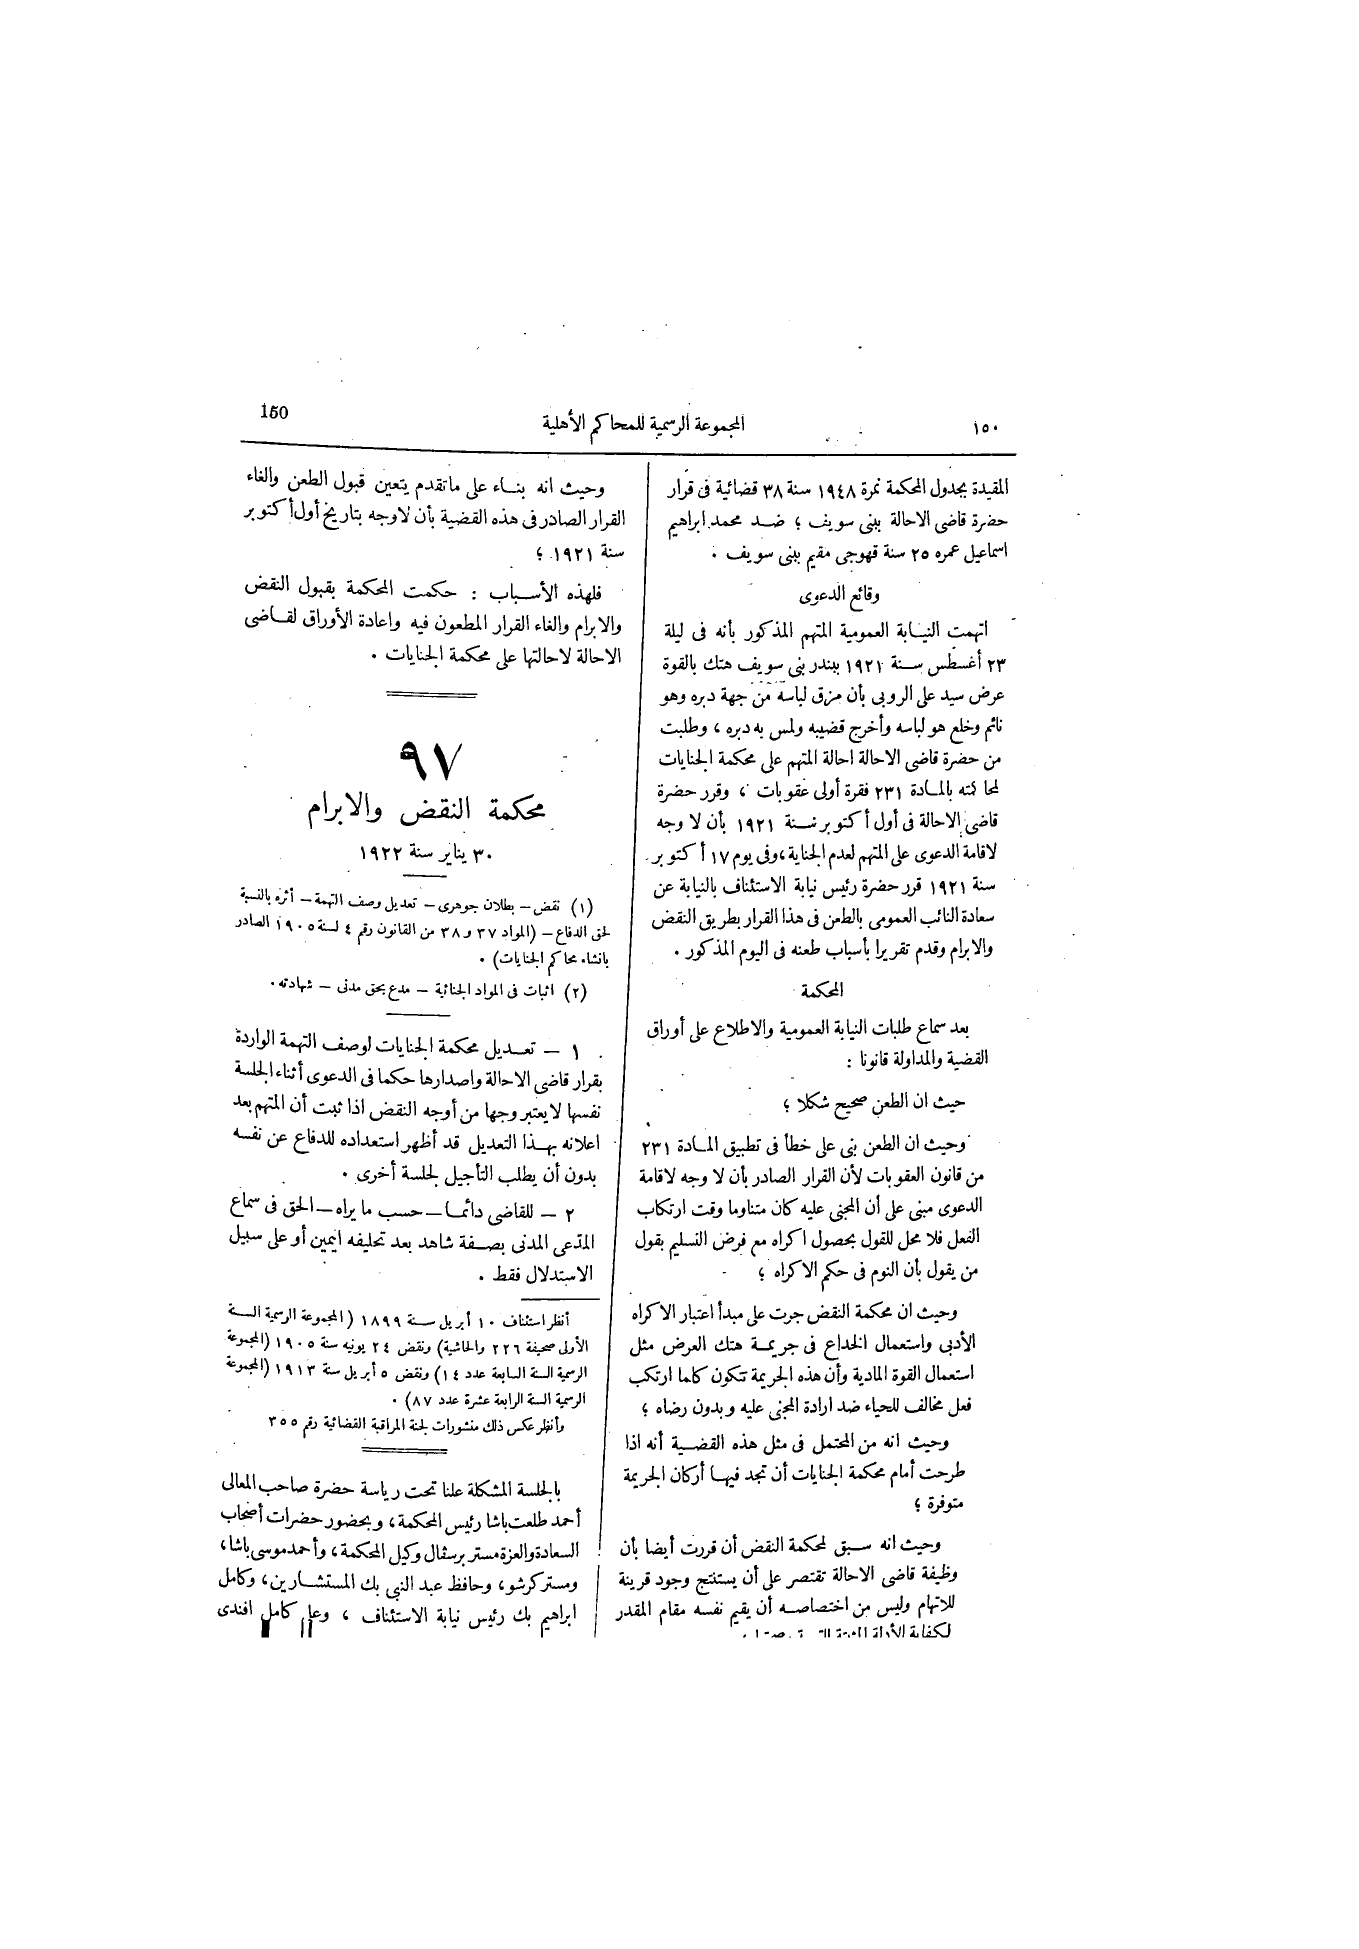 ١٥٠
المجموعة الرسمية للمحاكم الأهلية
150
المقيدة بجدول المحكمة نمرة ١٩٤٨ سنة ٣٨ قضائية فى قرار
حضرة قاضى الاحالة ببنى سويف ؛ ضد محمد ابراهيم
اسماعيل عمره ٢٥ سنة قهوجى مقيم ببنى سويف .
وقائع الدعوى
اتهمت النيابة العمومية المتهم المذكور بأنه فى ليلة
٢٣ أغسطس سنة ١٩٢١ ببندر بنى سويف هتك بالقوة
عرض سيد على الروبى بأن مزق لباسه من جهة دبره وهو
نائم وخلع هو لباسه وأخرج قضيبه ولمس به دبره ، وطلبت
من حضرة قاضى الاحالة احالة المتهم على محكمة الجنايات
لمحاكمته بالمادة ٢٣١ فقرة أولى عقوبات ، وقرر حضرة
قاضى الاحالة فى أول أكتوبر سنة ١٩٢١ بأن لا وجه
لاقامة الدعوى على المتهم لعدم الجناية ، وفى يوم ١٧ أكتوبر
سنة ١٩٢١ قرر حضرة رئيس نيابة الاستئناف بالنيابة عن
سعادة النائب العمومى بالطعن فى هذا القرار بطريق النقض
والابرام وقدم تقريرا بأسباب طعنه فى اليوم المذكور .
المحكمة
بعد سماع طلبات النيابة العمومية والاطلاع على أوراق
القضية والمداولة قانونا :
حيث ان الطعن صحيح شكلا ؛
وحيث ان الطعن بنى على خطأ فى تطبيق المادة ٢٣١
من قانون العقوبات لأن القرار الصادر بأن لا وجه لاقامة
الدعوى مبنى على أن المجنى عليه كان متناوما وقت ارتكاب
الفعل فلا محل للقول بحصول اكراه مع فرض التسليم بقول
من يقول بأن النوم فى حكم الاكراه ؛
وحيث ان محكمة النقض جرت على مبدأ اعتبار الاكراه
الأدبى واستعمال الخداع فى جريمة هتك العرض مثل
استعمال القوة المادية وأن هذه الجريمة تتكون كلما ارتكب
فعل مخالف للحياء ضد ارادة المجنى عليه وبدون رضاه ؛
وحيث انه من المحتمل فى مثل هذه القضية أنه اذا
طرحت أمام محكمة الجنايات أن تجد فيها أركان الجريمة
متوفرة ؛
وحيث انه سبق لمحكمة النقض أن قررت أيضا بأن
وظيفة قاضى الاحالة تقتصر على أن يستنتج وجود قرينة
للاتهام وليس من اختصاصه أن يقيم نفسه مقام المقدر
لكفاية الأدلة
وحيث انه بناء على ماتقدم يتعين قبول الطعن والغاء
القرار الصادر فى هذه القضية بأن لاوجه بتاريخ أول أكتوبر
سنة ١٩٢١ ؛
فلهذه الأسباب : حكمت المحكمة بقبول النقض
والابرام والغاء القرار المطعون فيه واعادة الأوراق لقاضى
الاحالة لاحالتها على محكمة الجنايات .
٩٧
محكمة النقض والابرام
٣٠ يناير سنة ١٩٢٢
(١) نقض – بطلان جوهرى – تعديل وصف التهمة – أثره بالنسبة
لحق الدفاع – (المواد ٣٧ و٣٨ من القانون رقم ٤ لسنة ١٩٠٥ الصادر
بانشاء محاكم الجنايات) .
(٢) اثبات فى المواد الجنائية – مدع بحق مدنى – شهادته .
١ – تعديل محكمة الجنايات لوصف التهمة الواردة
بقرار قاضى الاحالة واصدارها حكما فى الدعوى أثناء الجلسة
نفسها لا يعتبر وجها من أوجه النقض اذا ثبت أن المتهم بعد
اعلانه بهذا التعديل قد أظهر استعداده للدفاع عن نفسه
بدون أن يطلب التأجيل لجلسة أخرى .
٢ – للقاضى دائما – حسب ما يراه – الحق فى سماع
المدّعى المدنى بصفة شاهد بعد تحليفه اليمين أو على سبيل
الاستدلال فقط .
أنظر استئناف ١٠ أبريل سنة ١٨٩٩ (المجموعة الرسمية السنة
الأولى صحيفة ٢٢٦ والحاشية) ونقض ٢٤ يونيه سنة ١٩٠٥ (المجموعة
الرسمية السنة السابعة عدد ١٤) ونقض ٥ أبريل سنة ١٩١٣ (المجموعة
الرسمية السنة الرابعة عشرة عدد ٨٧) .
وأنظر عكس ذلك منشورات لجنة المراقبة القضائية رقم ٣٥٥
بالجلسة المشكلة علنا تحت رياسة حضرة صاحب المعالى
أحمد طلعت باشا رئيس المحكمة ، وبحضور حضرات أصحاب
السعادة والعزة مستر برسفال وكيل المحكمة ، وأحمد موسى باشا ،
ومستر كرشو ، وحافظ عبد النبى بك المستشارين ، وكامل
ابراهيم بك رئيس نيابة الاستئناف ، وعلى كامل افندى